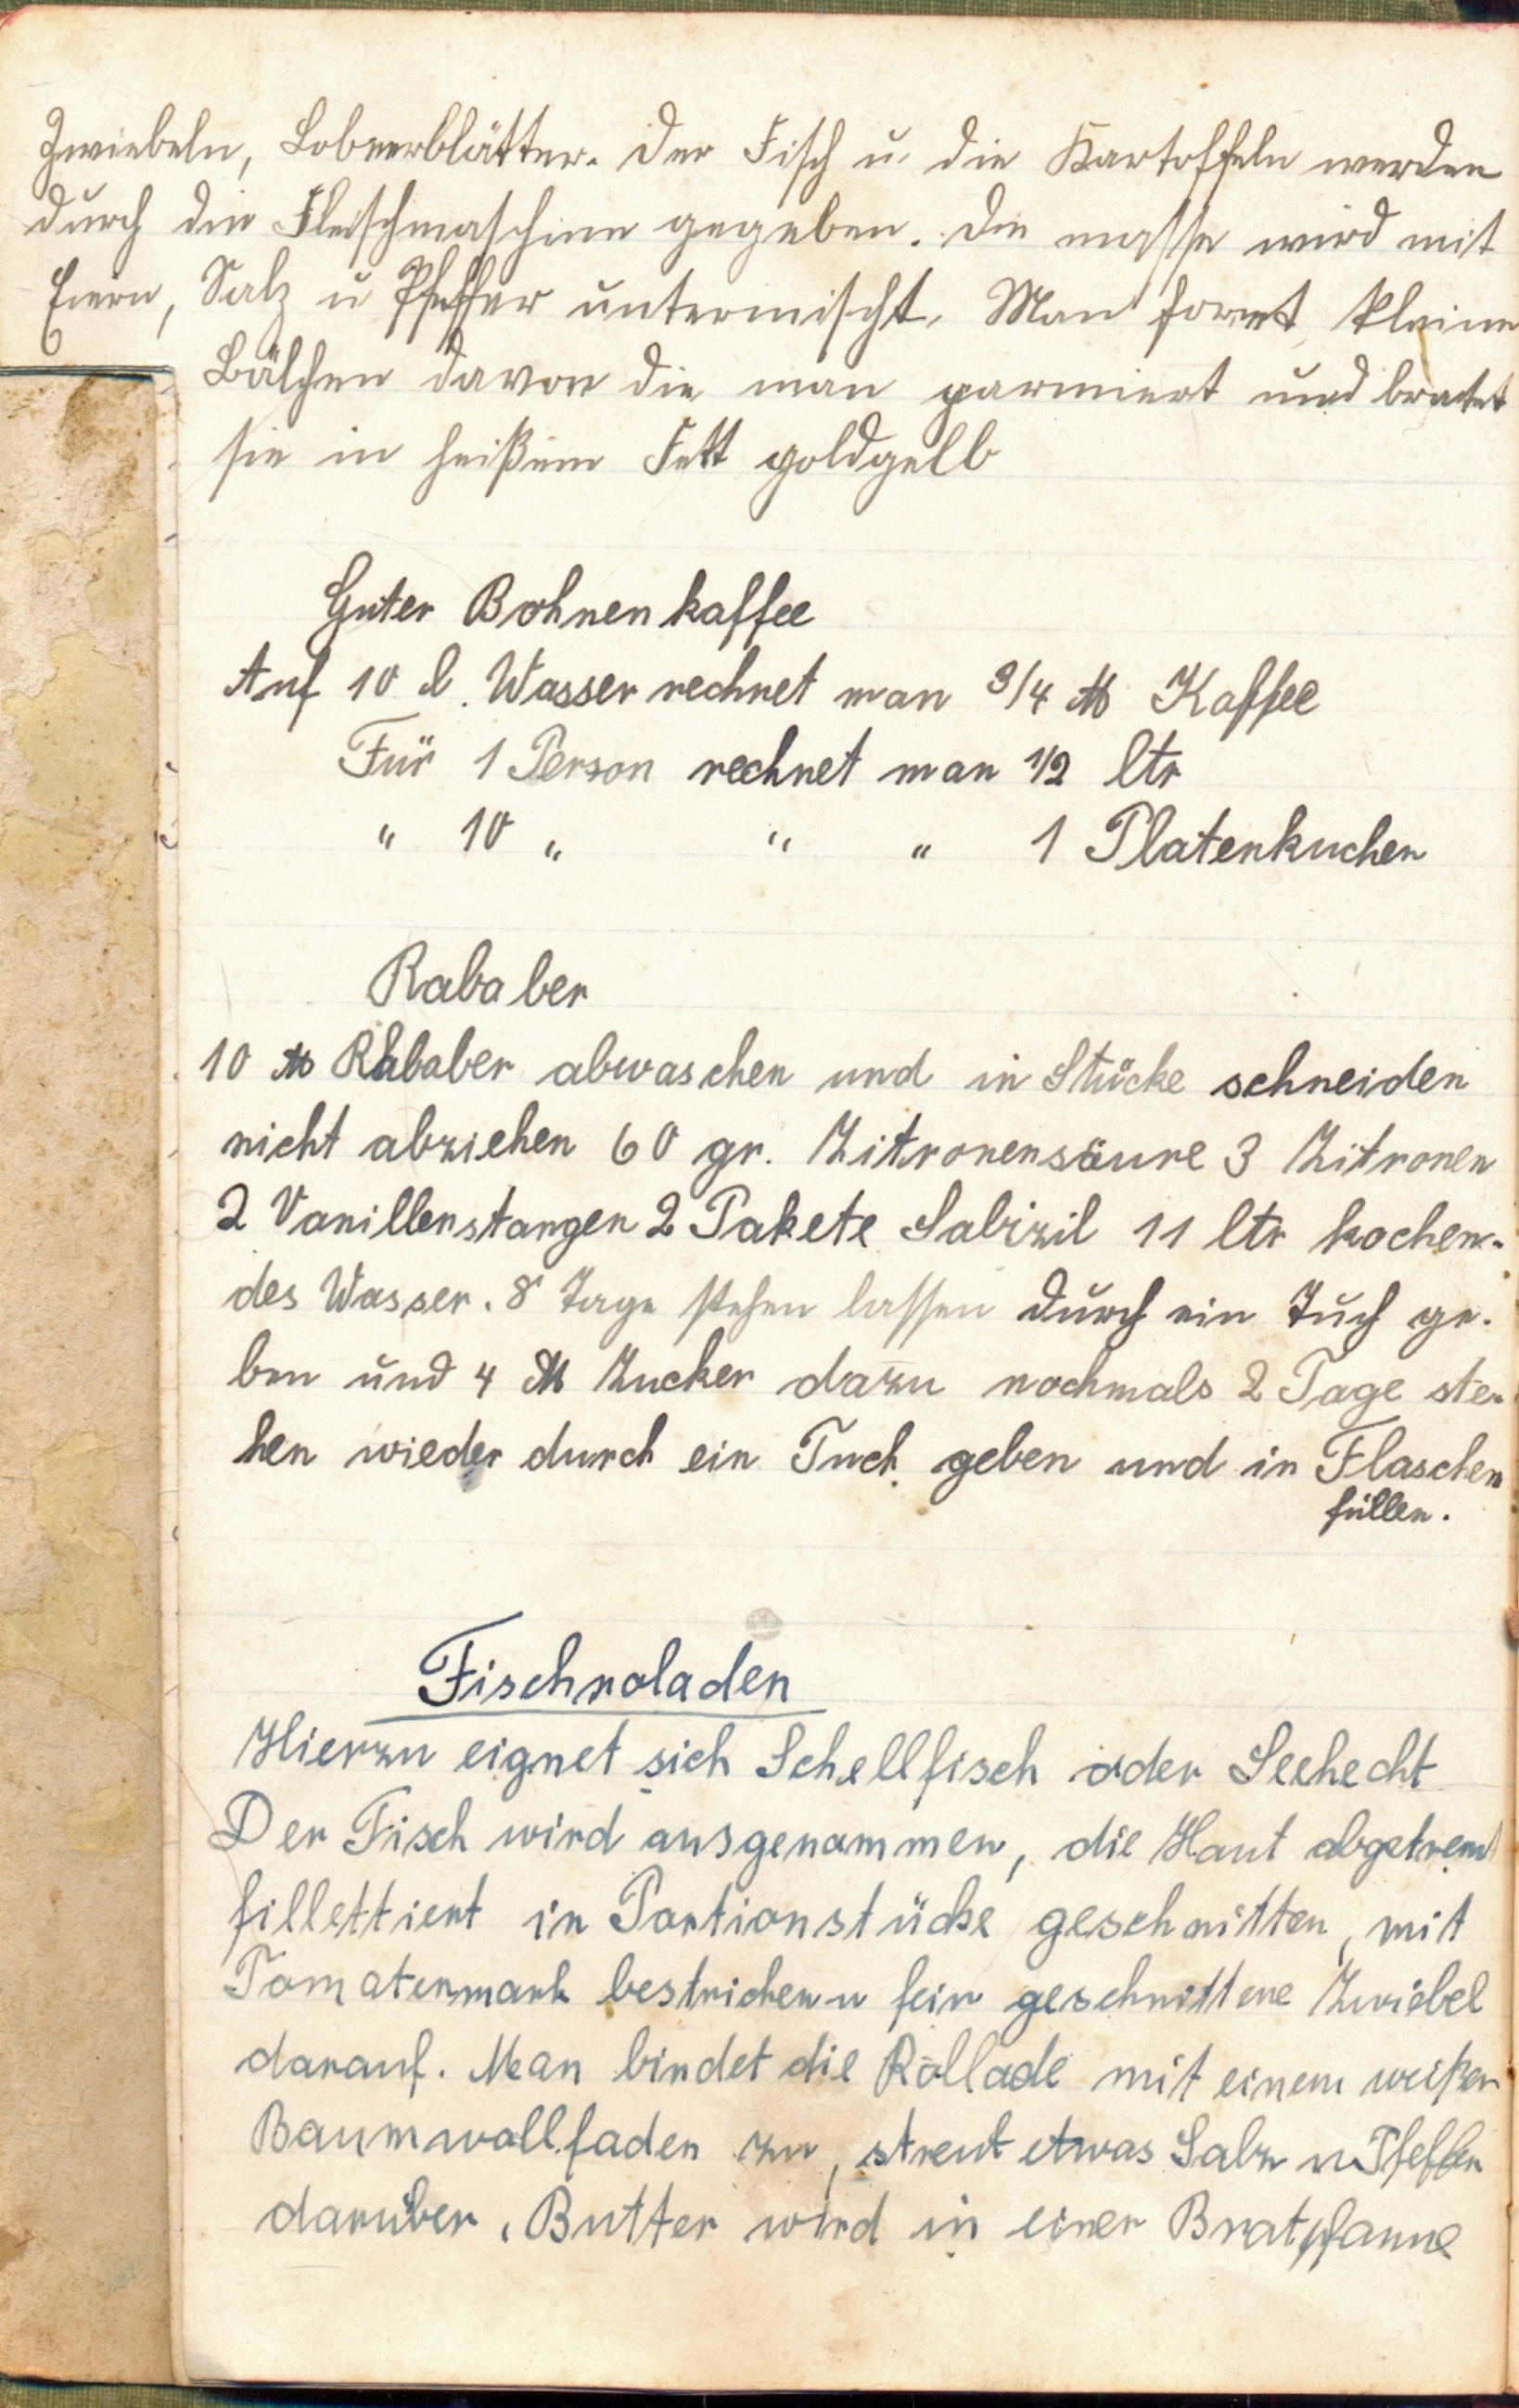 Zwiebeln, Lobeerblätter. Der Fisch u. die Kartoffeln werden
durch die Fleischmaschine gegeben. Die masse wird mit
Eiern, Salz u Pfeffer untermischt. Man formt kleine
Bälchen davon die man parniert und bratet
sie in heißem Fett goldgelb
Guter Bohnenkaffee
Auf 10 l. Wasser rechnet man 3/4 ℔ Kaffee
Für 1 Person rechnet man 1/2 ltr
" 10 " " " 1 Platenkuchen
Rababer
10 ℔ Rhababer abwaschen und in Stücke schneiden
nicht abziehen 60 gr. Zitronensäure 3 Zitronen
2 Vanillenstangen 2 Pakete Salizil 11 ltr kochen-
des Wasser. 8 Tage stehen lassen durch ein Tuch ge-
ben und 4 ℔ Zucker dazu nochmals 2 Tage ste-
hen wieder durch ein Tuch geben und in Flaschen
füllen.
Fischroladen
Hierzu eignet sich Schellfisch oder Seehecht
Der Fisch wird ausgenommen, die Haut abgetrennt
fillettiert in Portionstücke geschnitten, mit
Tomatenmark bestrichen u fein geschnittene Zwiebel
darauf. Man bindet die Rollade mit einem weißen
Baumwollfaden zu, streut etwas Salz u Pfeffer
darüber. Butter wird in einer Bratpfanne